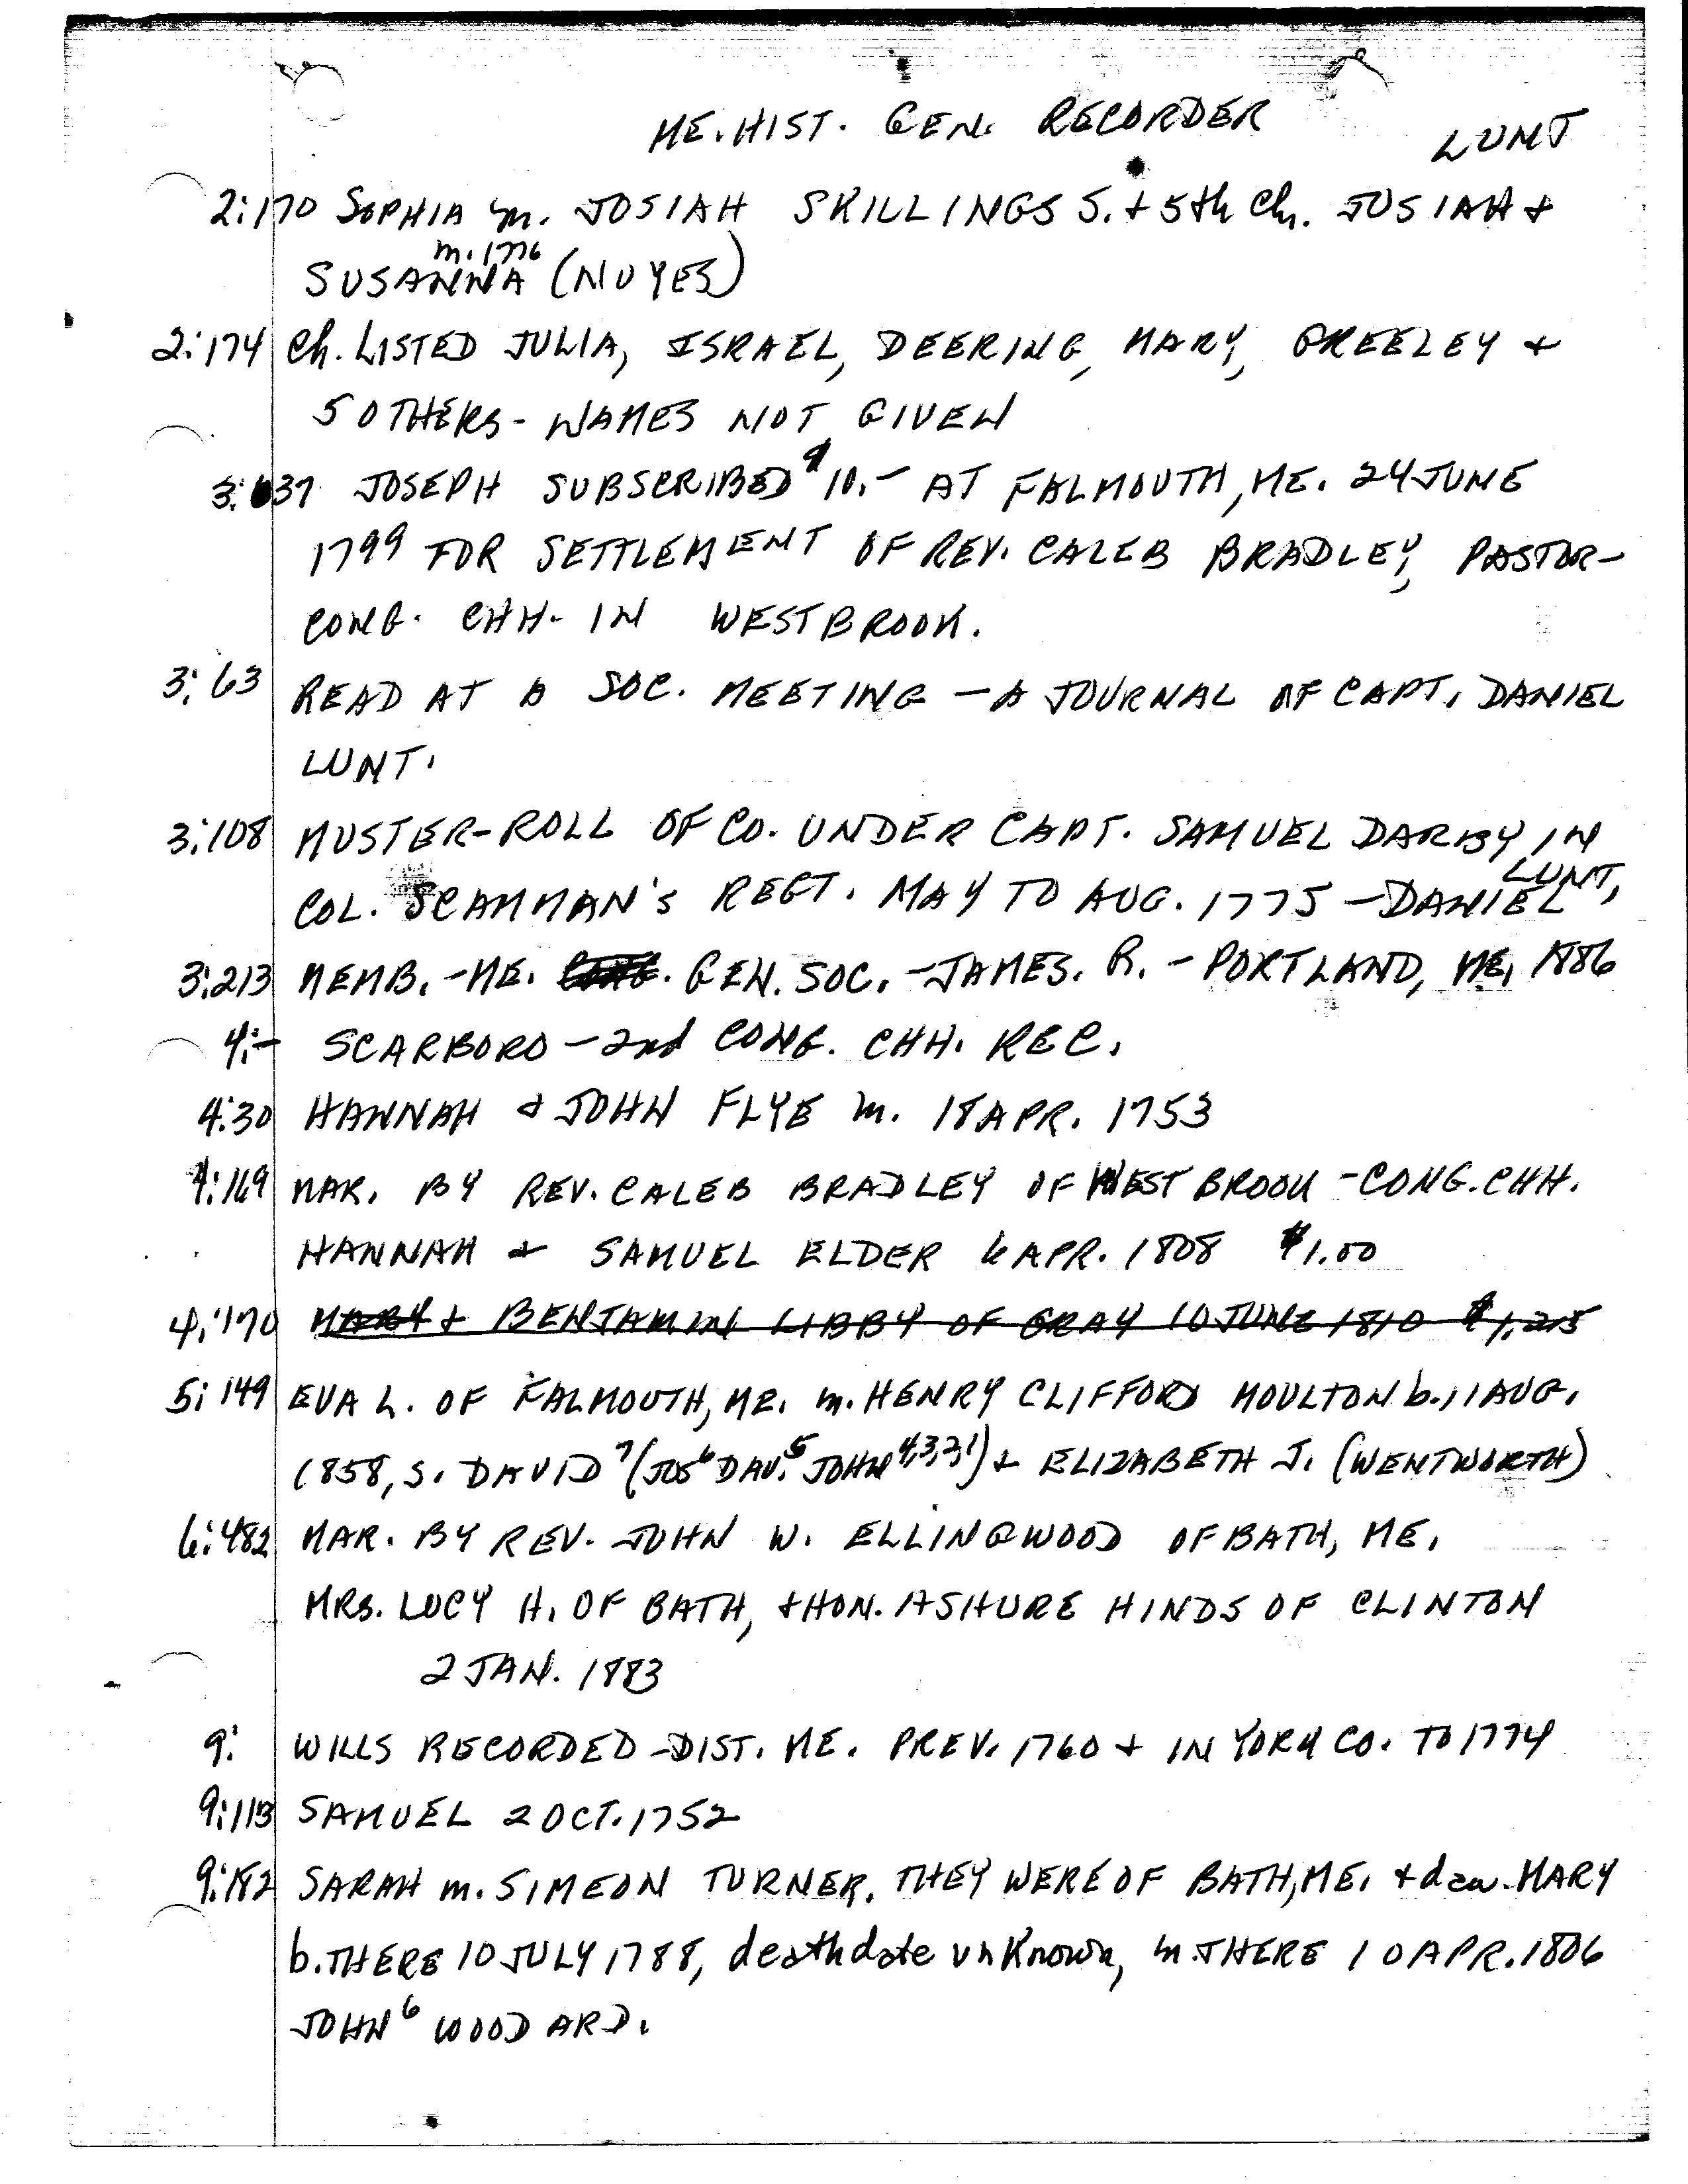 ME. HIST. GEN. RECORDER
LUNT
2:170 SOPHIA m. JOSIAH SKILLINGS S. + 5th Ch. JOSIAH +
m. 1776
SUSANNA (NOYES)
2:174 Ch. LISTED JULIA, ISRAEL, DEERING, MARY, GREELEY +
5 OTHERS - NAMES NOT GIVEN
3: 37 JOSEPH SUBSCRIBED $10.- AT FALMOUTH, ME. 24 JUNE
1799 FOR SETTLEMENT OF REV. CALEB BRADLEY, PASTOR-
CONG. CHH. IN WESTBROOK.
3:63 READ AT A SOC. MEETING - A JOURNAL OF CAPT. DANIEL
LUNT.
3:108 MUSTER-ROLL OF CO. UNDER CAPT. SAMUEL DARBY IN
COL. SCAMMAN'S REGT. MAY TO AUG. 1775 - DANIEL LUNT,
3:213 MEMB. - ME. GEN. SOC. - JAMES. R. - PORTLAND, ME, 1886
4:- SCARBORO - 2nd CONG. CHH. REC.
4:30 HANNAH & JOHN FLYE m. 18 APR. 1753
4:169 MAR. BY REV. CALEB BRADLEY OF WESTBROOK - CONG. CHH.
HANNAH & SAMUEL ELDER 6 APR. 1808 $1.00
4:170 MARY + BENJAMIN LIBBY OF GRAY 10 JUNE 1810 $1.25
5:149 EVA L. OF FALMOUTH, ME. m. HENRY CLIFFORD MOULTON b. 11 AUG.
1858, S. DAVID⁷ (JOS⁶ DAV.⁵ JOHN⁴,³,²,¹) + ELIZABETH J. (WENTWORTH)
6:482 MAR. BY REV. JOHN W. ELLINGWOOD OF BATH, ME.
MRS. LUCY H. OF BATH, + HON. ASHURE HINDS OF CLINTON
2 JAN. 1883
9: WILLS RECORDED - DIST. ME. PREV. 1760 + IN YORK CO. TO 1774
9:113 SAMUEL 2 OCT. 1752
9:182 SARAH m. SIMEON TURNER. THEY WERE OF BATH, ME. + dau. MARY
b. THERE 10 JULY 1788, death date unknown, m. THERE 10 APR. 1806
JOHN⁶ WOODARD.